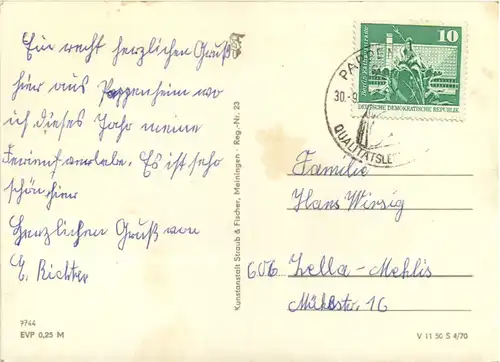 Ein recht herzlichen Gruß
hier aus Pappenheim wo
ich dieses Jahr meine
Ferien verlebe. Es ist sehr
schön hier
Herzlichen Gruß von
E. Richter
7744
EVP 0,25 M
Kunstanstalt Straub & Fischer, Meiningen - Reg.-Nr. 23
10
DEUTSCHE DEMOKRATISCHE REPUBLIK
30.-9
Familie
Hans Wirsig
606 Zella-Mehlis
Mühlstr. 16
V 11 50 S 4/70